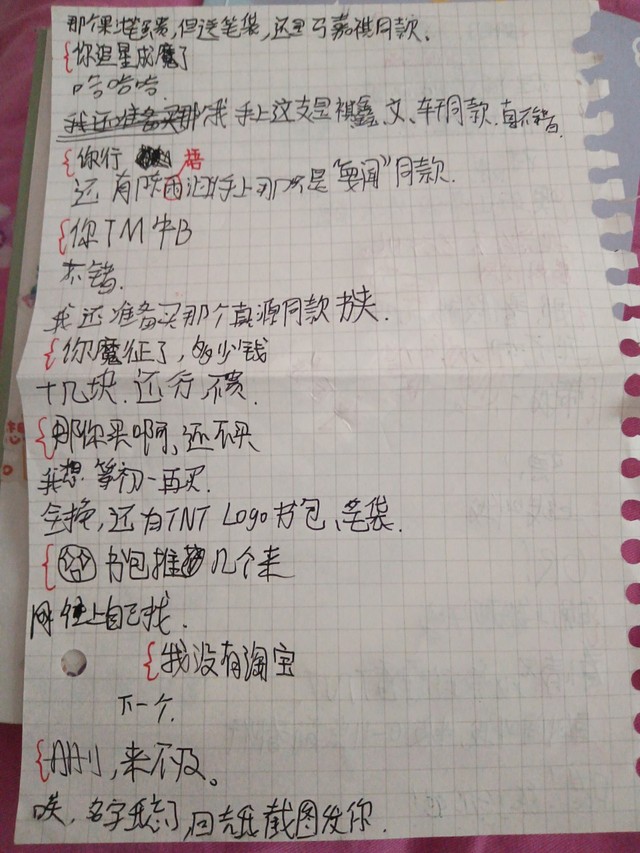 那个果冻笔贵,但送笔袋,还是马嘉祺同款.
{你追星成魔了
哈哈哈.
我还准备买那个我手上这支是祺鑫、文、轩同款.真不错.
{你行 梧
还有陕西 手上那 是"要闻"同款.
{你TM牛B
不错.
我还准备买那个真源同款书夹.
{你魔征了,多少钱
十几块.还行,不贵.
{那你买啊,还不买
我想等初一再买.
全换,还有TNT Logo书包、笔袋.
{书包推 几个来
网 上自己找.
{我没有淘宝
下一个.
{ ,来不及。
唉,名字我忘了,回去我截图发你.